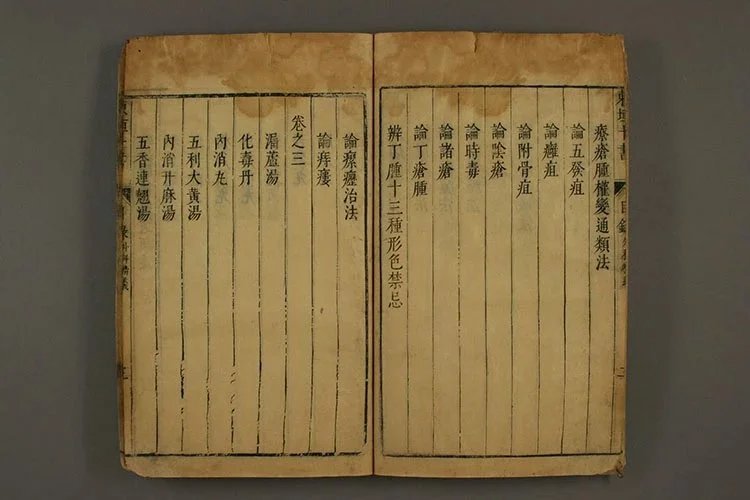 目錄
療瘡腫權變通類法
論五發疽
論癰疽
論附骨疽
論陰瘡
論時毒
論諸瘡
論丁瘡腫
辨丁腫十三種形色禁忌
論瘰癧治法
論痔瘻
卷之三
漏蘆湯
化毒丹
內消丸
五利大黃湯
內消升麻湯
五香連翹湯